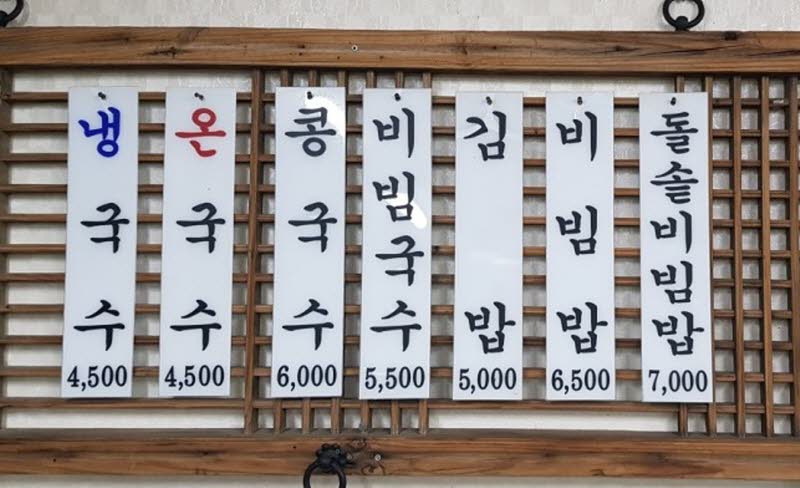 냉국수
4,500
온국수
4,500
콩국수
6,000
비빔국수
5,500
김밥
5,000
비빔밥
6,500
돌솥비빔밥
7,000